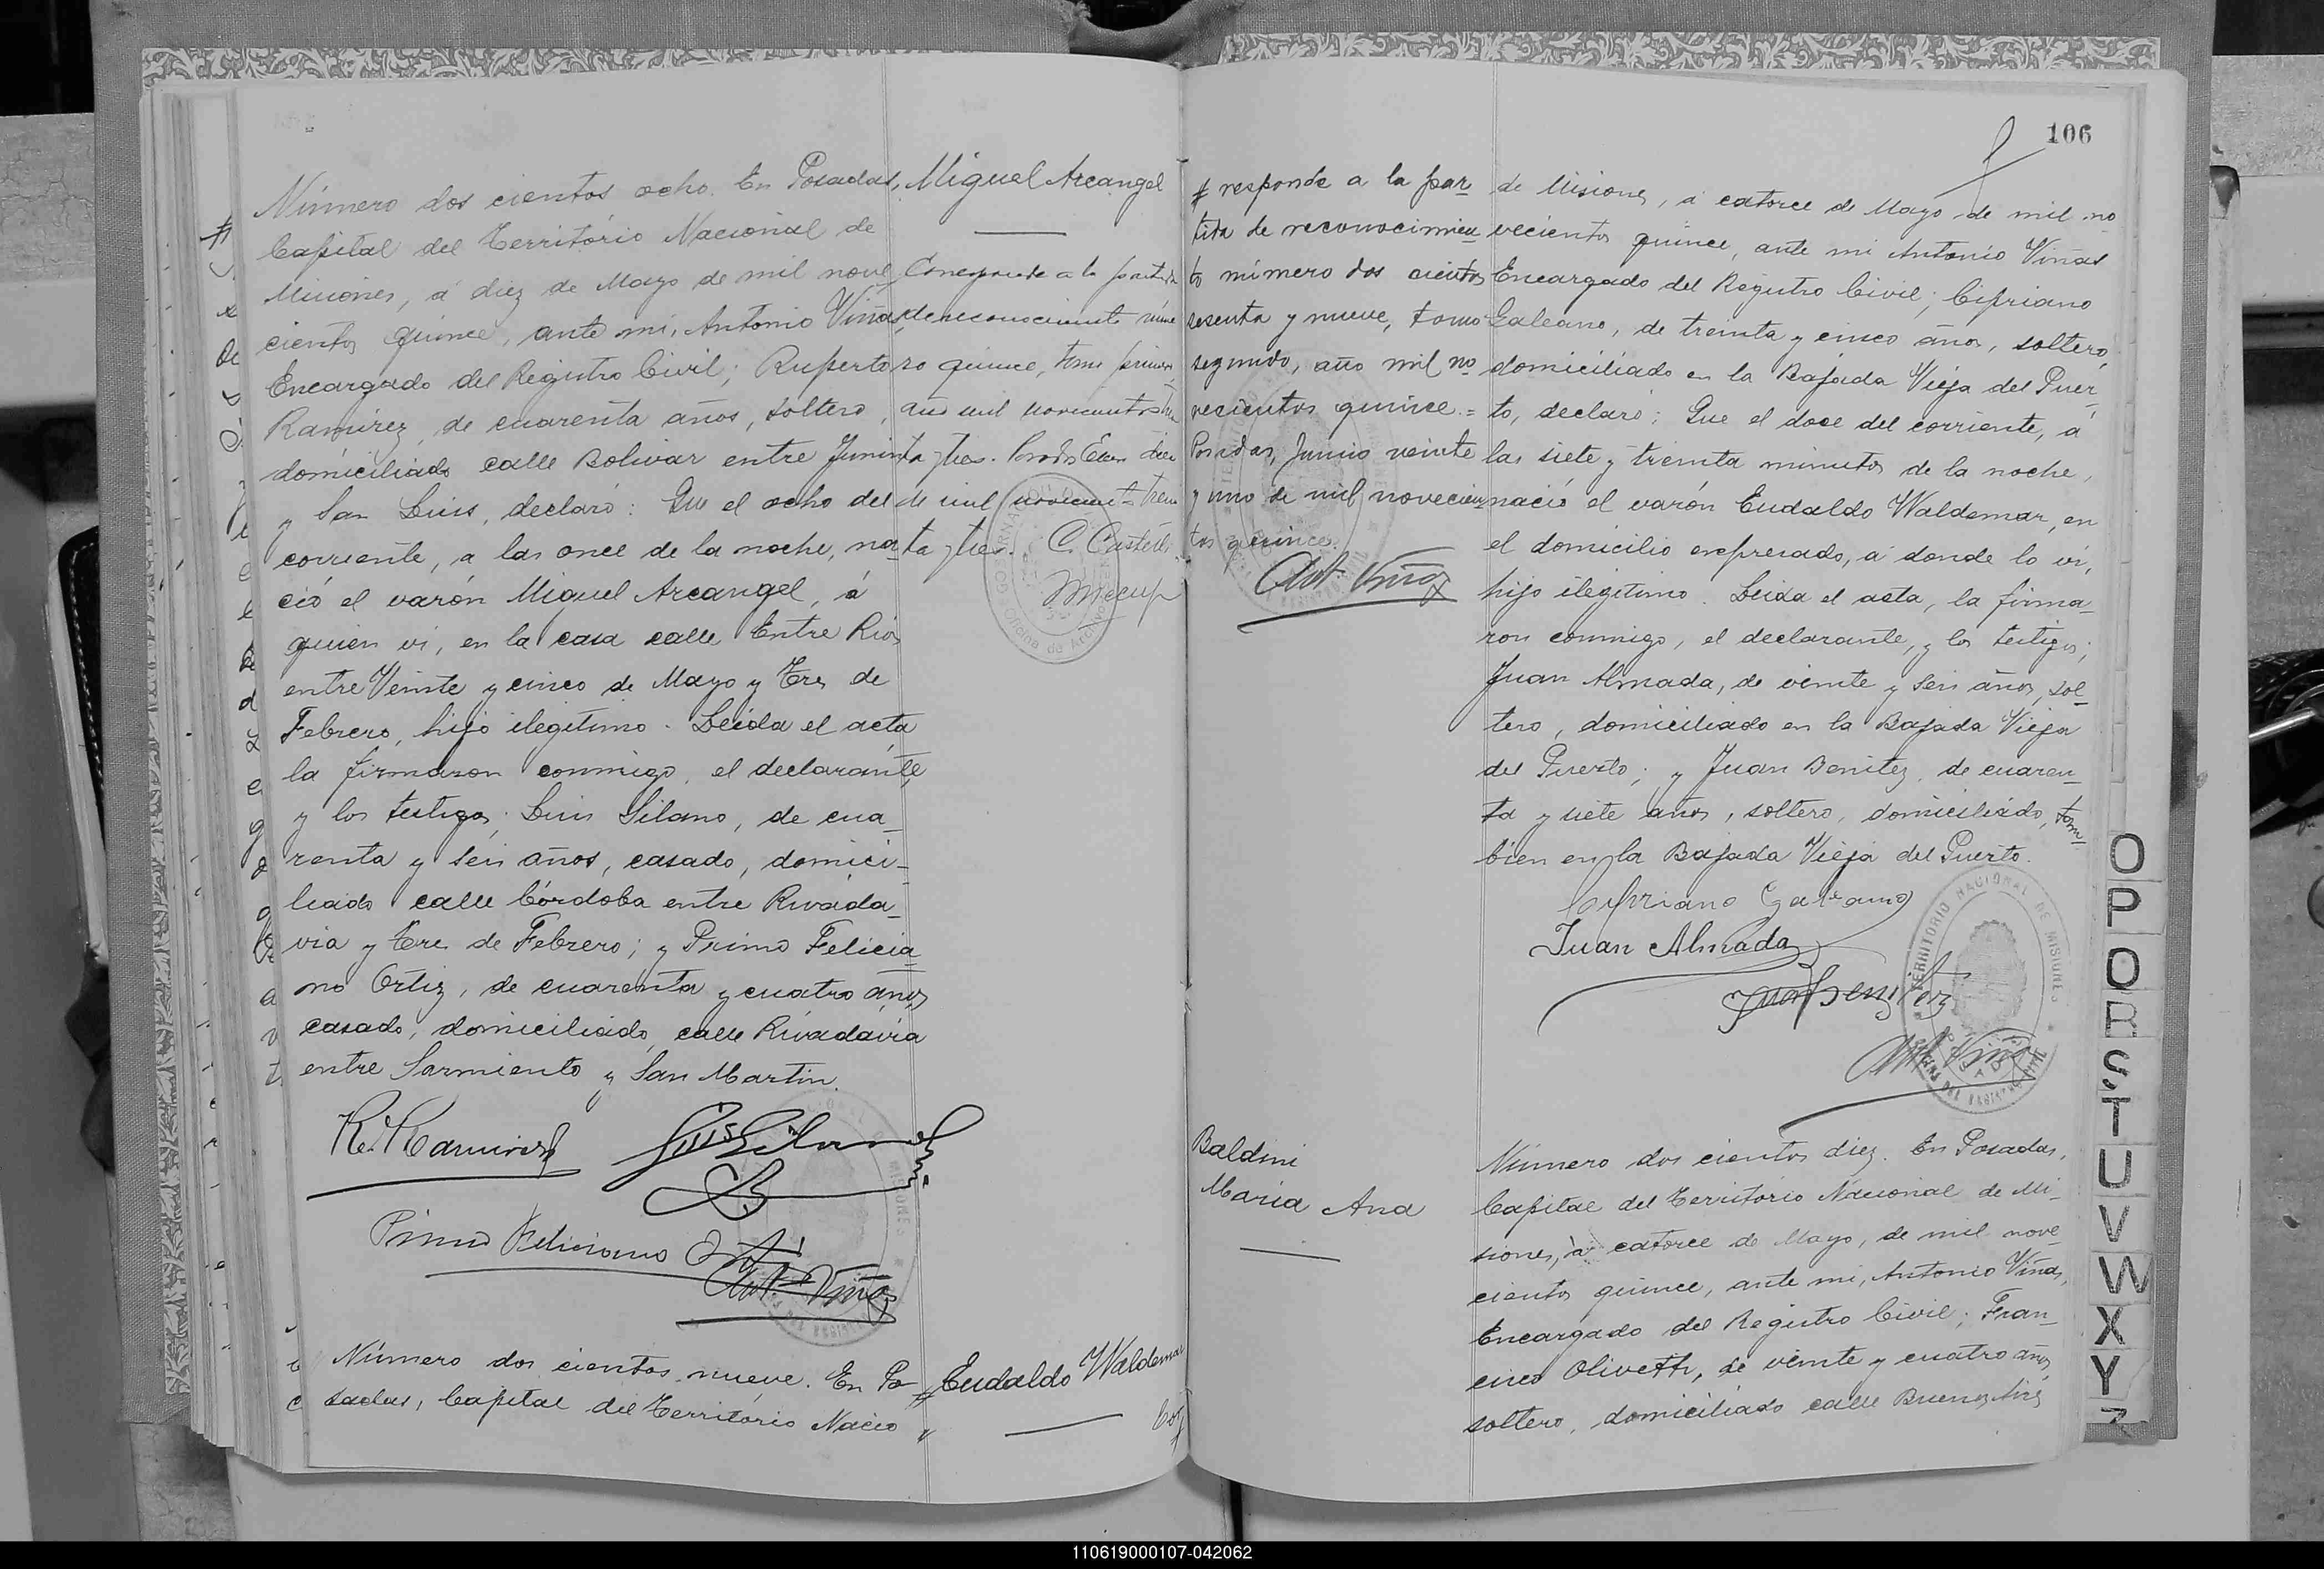 Número dos cientos ocho. En Posadas,
Capital del Território Nacional de
Misiones, á diez de Mayo de mil nove
cientos quince, ante mi, Antonio Viñas,
Encargado del Registro Civil; Ruperto
Ramirez, de cuarenta años, soltero,
domiciliado calle Bolivar entre Junin
y San Luis, declaró: Que el ocho del
corriente, a las once de la noche, na
ció el varón Miguel Arcangel, á
quien vi, en la casa calle Entre Rios
entre Veinte y cinco de Mayo y Tres de
Febrero, hijo ilegitimo. Leida el acta
la firmaron conmigo, el declarante,
y los testigos; Luis Silano, de cua-
renta y seis años, casado, domici-
liado calle Córdoba entre Rivada-
via y tres de Febrero; y Primo Felicia
no Ortiz, de cuarenta y cuatro años,
casado, domiciliado, calle Rivadávia
entre Sarmiento y San Martin.
R. Ramirez
Luis Silano
Primo Feliciano Ortiz
Ant. Viñas
Número dos cientos nueve. En Po-
sadas, Capital del Território Nacio
Miguel Arcangel
Corresponde a la partida
de reconocimiento núme
ro quince, tomo primero
año mil novecientos trein
ta y tres. Posadas Enero diez
de mil novecientos trein
ta y tres.
Eudaldo Waldemar
Cor
106
# responde a la par
tida de reconocimien
to número dos cientos
sesenta y nueve, tomo
segundo, año mil no
vecientos quince.=
Posadas, Junio veinte
y uno de mil novecien
tos quince.
Ant. Viñas
de Misiones, á catorce de Mayo de mil no
vecientos quince, ante mi Antonio Viñas
Encargado del Registro Civil; Cipriano
Galeano, de treinta y cinco años, soltero,
domiciliado en la Bajada Vieja del Puer
to, declaró: Que el doce del corriente, á
las siete y treinta minutos de la noche,
nació el varón Eudaldo Waldemar, en
el domicilio expresado, á donde lo vi,
hijo ilegitimo. Leida el acta, la firma-
ron conmigo, el declarante, y los testigos;
Juan Almada, de veinte y seis años, sol-
tero, domiciliado en la Bajada Vieja
del Puerto; y Juan Benitez, de cuaren-
ta y siete años, soltero, domiciliado, tam
bien en la Bajada Vieja del Puerto.
Cipriano Galeano
Juan Almada
Juan Benitez
Ant. Viñas
TERRITORIO NACIONAL DE MISIONES
Baldini
María Ana
Número dos cientos diez. En Posadas,
Capital del Território Nacional de Mi-
siones, á catorce de Mayo, de mil nove-
cientos quince, ante mi, Antonio Viñas,
Encargado del Registro Civil; Fran-
cisco Olivetti, de veinte y cuatro años,
soltero, domiciliado calle Buenos Aires
O
P
Q
R
S
T
U
V
W
X
Y
Z
110619000107-042062